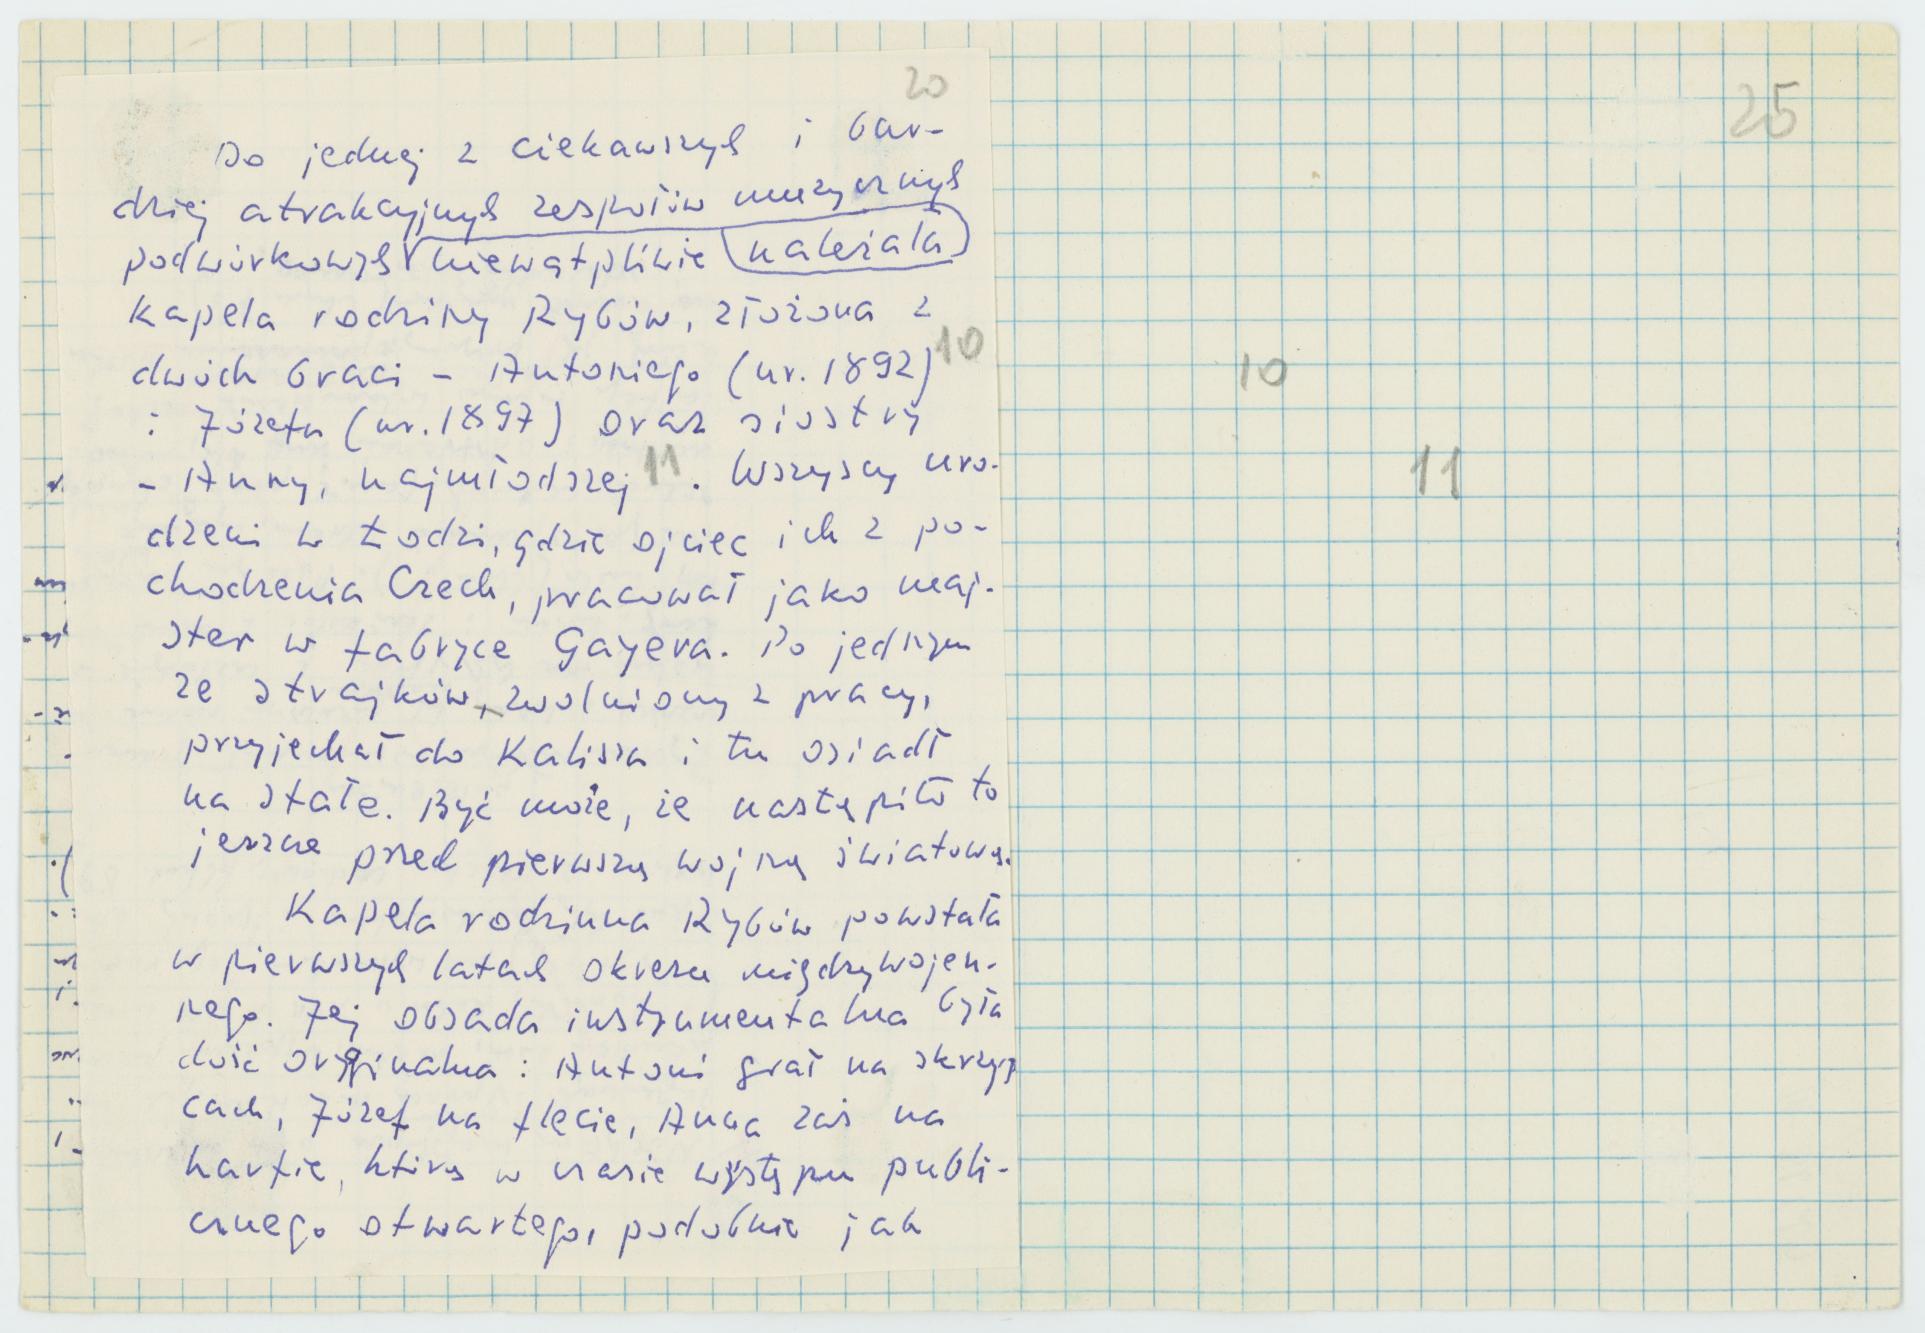 20
25
Do jednej z ciekawszych i bar-
dziej atrakcyjnych zespołów muzycznych
podwórkowych niewątpliwie należała
kapela rodziny Rybów, złożona z
dwóch braci - Antoniego (ur. 1892) 10
i Józefa (ur. 1897) oraz siostry
- Anny, najmłodszej 11. Wszyscy uro-
dzeni w Łodzi, gdzie ojciec ich z po-
chodzenia Czech, pracował jako maj-
ster w fabryce Gayera. Po jednym
ze strajków, zwolniony z pracy,
przyjechał do Kalisza i tu osiadł
na stałe. Być może, że nastąpiło to
jeszcze przed pierwszą wojną światową.
Kapela rodzinna Rybów powstała
w pierwszych latach okresu międzywojen-
nego. Jej obsada instrumentalna była
dość oryginalna: Antoni grał na skrzyp
cach, Józef na flecie, Anna zaś na
harfie, którą w czasie występu publi-
cznego otwartego, podobnie jak
10
11